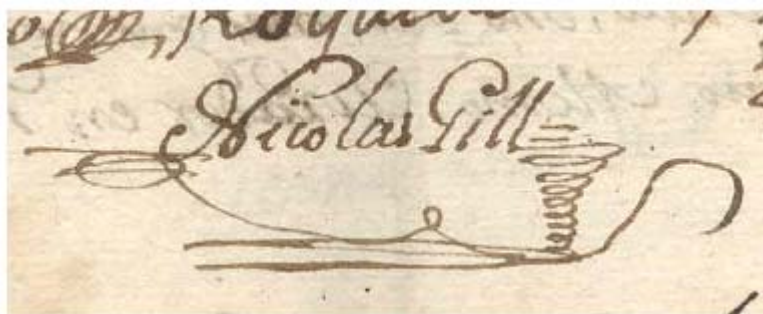 Nicolas Gill